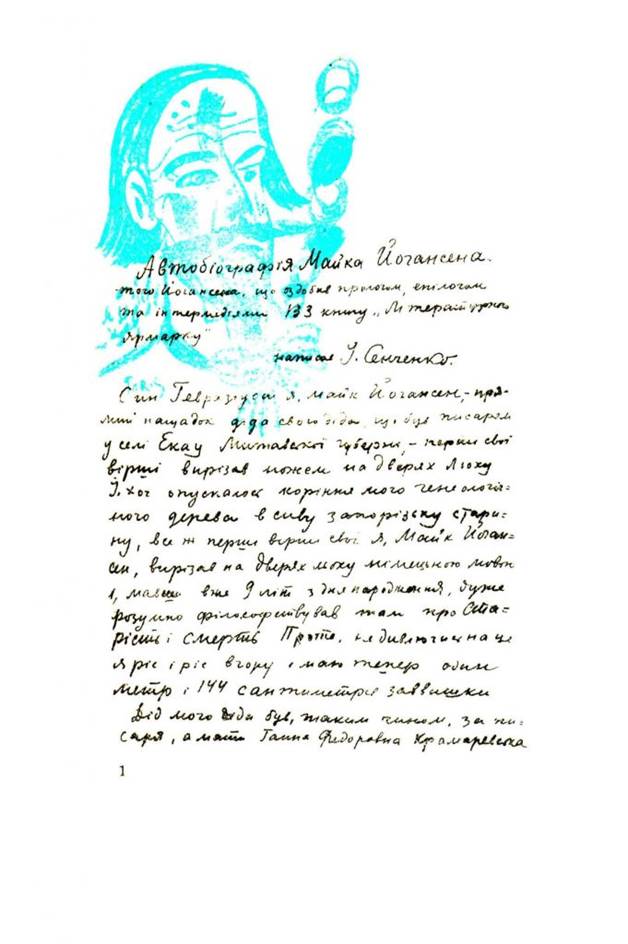 Автобіографія Майка Йогансена.
того Йогансена, що оздобив прологом, епілогом
та інтермедіями 133 книгу „Літературного
Ярмарку"
написав І. Сенченко.
Син Гервазіуса я, Майк Йогансен, – пря-
мий нащадок діда свого діда, що був писарем
у селі Екау Митавської губерні, – перші свої
вірші вирізав ножем на дверях льоху
І, хоч опускалось коріння мого генеологіч-
ного дерева в сиву запорізьку стари-
ну, все ж перші вірші свої я, Майк Йоган-
сен, вирізав на дверях льоху німецькою мовою
і, мавши вже 9 літ з дня народження, дуже
розумно філософствував там про Ста-
рість і смерть Проте, не дивлючись на це
я ріс і ріс вгору і маю тепер один
метр і 144 сантиметрів заввишки
Дід мого діда був, таким чином, за пи-
саря, а мати Ганна Федоровна Крамаревська
1